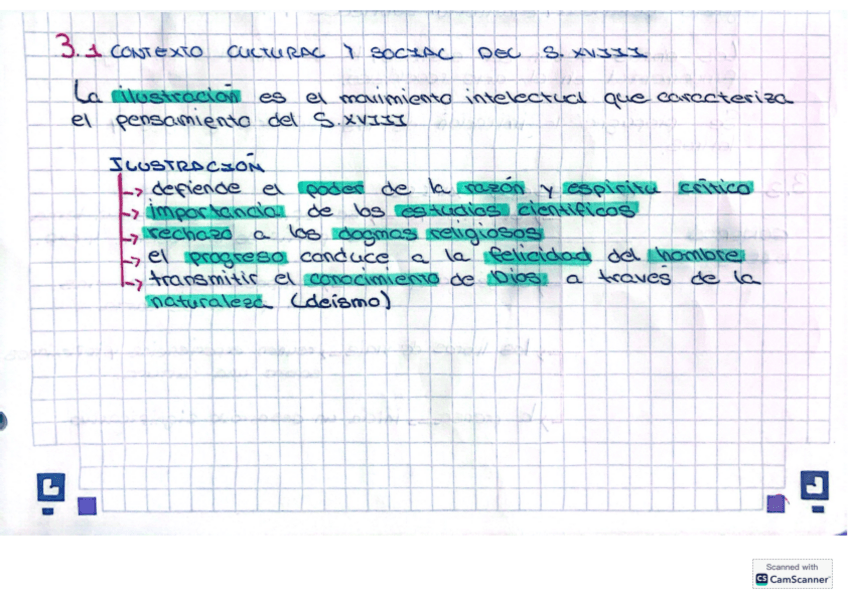 3.1 CONTEXTO CULTURAL Y SOCIAL DEL S. XVIII
La ilustración es el movimiento intelectual que caracteriza
el pensamiento del S.XVIII
ILUSTRACIÓN
→ defiende el poder de la razón y espíritu crítico
→ importancia de los estudios científicos
→ rechazo a los dogmas religiosos
→ el progreso conduce a la felicidad del hombre
→ transmitir el conocimiento de Dios a través de la
naturaleza (deísmo)
Scanned with
CS CamScanner